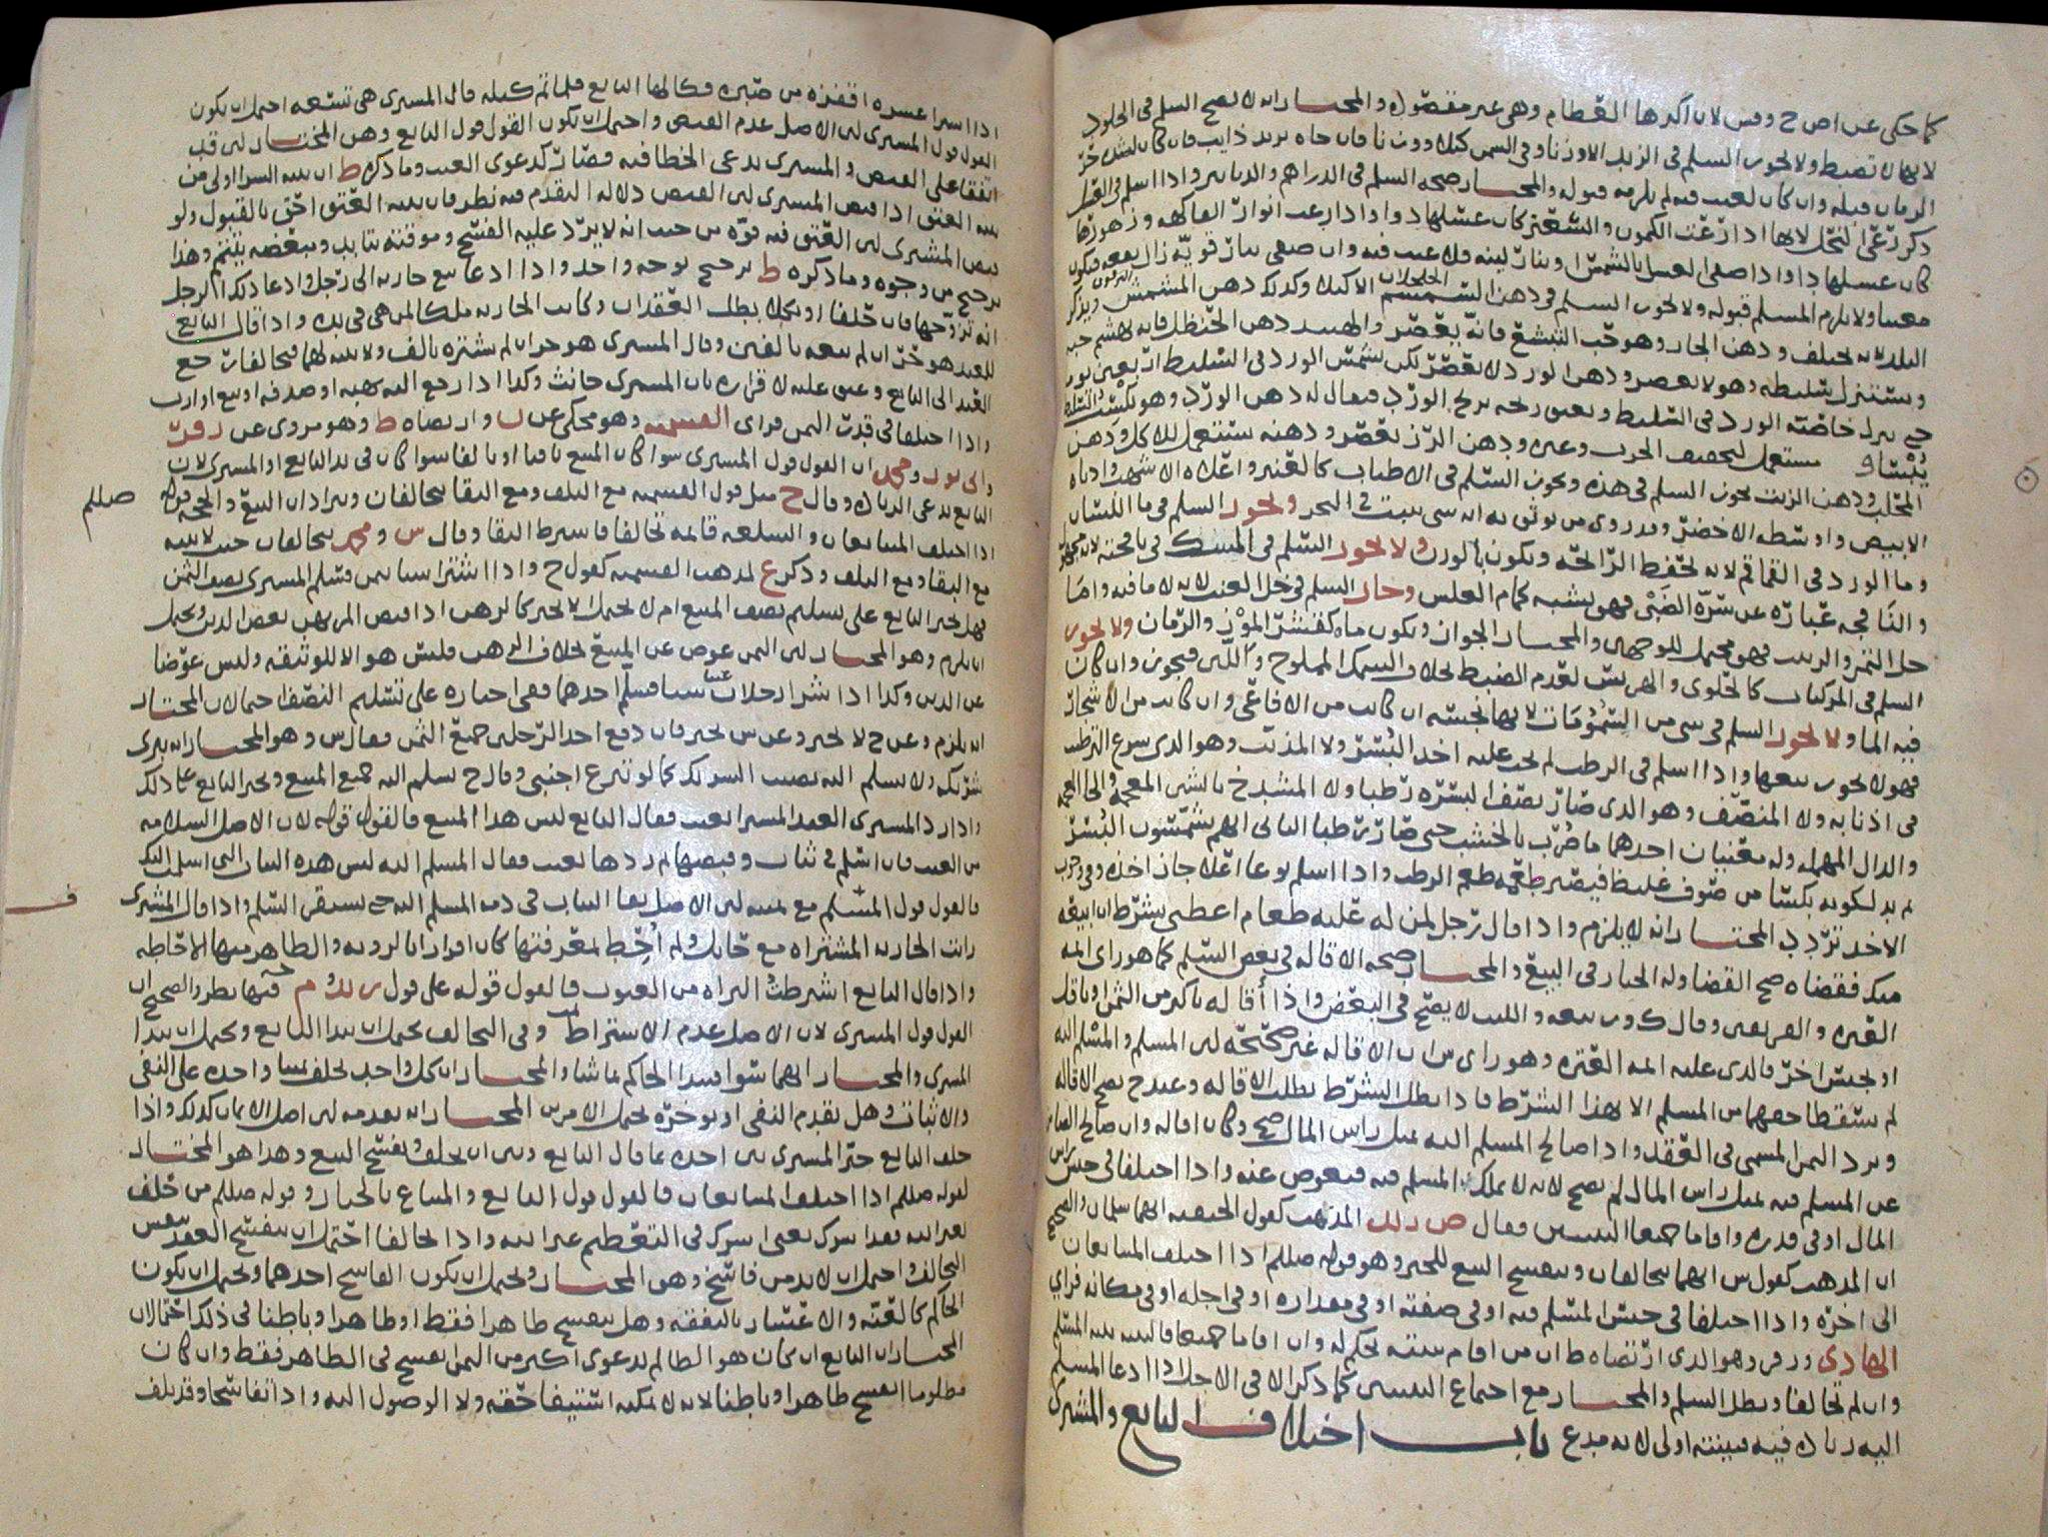 كما حكى عن اص ح وس لان اكثرها العظام وهي غير مقصوده والمختار انه لا يصح السلم في الجلود
لانها لا تضبط ولا يجوز السلم في الزبد الا وزنا وفي السمن كيلا ووزنا فان جاه بزبد ذايب فان كان لشدة حر
الزمان قبله وان كان لعيب فيه لم يلزمه قبوله والمختار صحه السلم في الدراهم والدنانير واذا اسلم في العسل
ذكر رعي النحل لانها اذا رعت الكمون والسعتر كان عسلها دوا واذا رعت انوار الفاكهه وزهورها
كان عسلها داوا واذا صفي العسل بالشمس او بنار لينه فلا عيب فيه وان صفي بنار قويه زال نفعه فيكون
معيبا ولا يلزم المسلم قبوله ولا يجوز السلم في دهن السمسم الا كيلا وكذلك دهن المشمش ويذكر
البلد لانه يختلف ودهن الجار وهو حب البشع فانه يعصر والهبيد دهن الحنظل فانه يهشم حبه
ويستنزل سليطه وهو لا يعصر ودهن الورد لا يعصر لكن يشمس الورد في السليط اربعين يوما
حتى ينزل خاصته الورد في السليط ويعبق ريحه بريح الورد فيقال له دهن الورد وهو
مستعمل لتجفيف الجرب وغيره ودهن الرز يعصر ودهنه يستعمل للاكل ودهن
المحلب ودهن الزيت يجوز السلم في هذه ويجوز السلم في الاطياب كالعنبر واعلاه الاشهب وادناه
الابيض واوسطه الاخضر وقد روي من يوثق به انه شي ينبت في البحر ويجوز السلم في ما اللسان
وما الورد في القماقم لانه يحفظ الرائحه ويكون بالوزن ولا يجوز السلم في المسك في نافجته لانه مجهول
والنافجه عباره عن سره الظبي فهو يشبه كمام العلس وجاز السلم في خل العنب لانه لا ما فيه واما
خل التمر والزبيب فهو محتمل للوجهين والمختار الجواز ويكون ماه كقشر الموز والرمان ولا يجوز
السلم في المركبات كالحلوى والهريس لعدم الضبط بخلاف السمك المملوح واللبن فيجوز وان كان
فيه الما ولا يجوز السلم في شي من السمومات لانها نجسه ان كانت من الافاعي وان كانت من الاشجار
فهو لا يجوز بيعها واذا اسلم في الرطب لم يجب عليه اخذ البسر ولا المذنب وهو الذي سرع الترطيب
في اذنابه ولا المنصف وهو الذي صار نصف البسره رطبا ولا المشدخ بالشين المعجمه والخا المعجمه
والدال المهمله وله معنيان احدهما ما ضرب بالخشب حتى صار رطبا الثاني انهم يشمسون البسر
ثم يدلكونه بكسا من صوف غليظ فيصير طعمه طعم الرطب واذا اسلم نوعا اعلا جاز اخذه وفي وجوب
الاخذ تردد المختار انه لا يلزم واذا قال رجل لمن له عليه طعام اعطني بشرط ان ابيعه
منك فقضاه صح القضا وله الخيار في البيع والمختار صحه الاقاله في بعض السلم كما هو راي ائمه
العتره والفريقين وقال ك ور بيعه والليث لا يصح في البعض واذا اقاله باكثر من الثمن او باقل
او بجنس اخر فالذي عليه ائمه العتره وهو راي س ان الاقاله غير صحيحه لان المسلم والمسلم اليه
لم يسقطا حقهما من المسلم الا بهذا الشرط فاذا بطل الشرط بطلت الاقاله وعند ح تصح الاقاله
ويرد الثمن المسمى في العقد واذا صالح المسلم اليه بمثل راس المال صح وكان اقاله وان صالح الضامن
عن المسلم فيه بمثل راس المال لم يصح لانه لا يملك المسلم فيه فيعوض عنه واذا اختلفا في جنس راس
المال او في قدره واقاما جميعا البينتين فقال ص زلد المذهب كقول الحنفيه انهما سلمان والصحيح
ان المذهب كقول س انهما يتحالفان وينفسخ البيع للخبر وهو قوله صللم اذا اختلف المتبايعان
الى اخره واذا اختلفا في جنس المسلم فيه او في صفته او في مقداره او في اجله او في مكانه فراي
الهادي وزفر وهو الذي ارتضاه ط ان من اقام بينته يحكم له وان اقاما جميعا فالبينه بينه المسلم
وان لم تحالفا وبطل السلم والمختار مع اجتماع البينتين كما ذكر الا في الاجل واذا ادعا المسلم
اليه زياده فيه فبينته اولى لانه مدع باب اختلاف البايع والمشتري
اذا اشترا عشره اقفزه من صبره فكالها البايع فلما تم كيله قال المشتري هي تسعه احتمل ان يكون
القول قول المشتري لان الاصل عدم القبض واحتمل ان يكون القول قول البايع وهو المختار لانه قد
اتفقا على القبض والمشتري يدعي الخطا فيه فصار كدعوى العيب وما ذكره ط ان بينه الشرا اولى من
بينه العتق اذا قبض المشتري لان القبض دلاله التقدم فيه نظر فان بينه العتق احق بالقبول ولو
قبض المشتري لان العتق فيه قوه من حيث انه لا يرد عليه الفسخ وموقته يتابد ومبعضه يتتمم وهذا
ترجيح من وجوه وما ذكره ط ترجيح بوجه واحد واذا ادعا بيع جاريه الى رجل وادعا ذلك الرجل
انه تزوجها فان حلفا او نكلا بطل العقدان وكانت الجاريه ملكا لمن هي في يده واذا قال البايع
للعبد هو حر ان لم يبعه بالفين وقال المشتري هو حر ان لم يشتره بالف ولا بينه لهما فتحالفا رجع
العبد الى البايع وعتق عليه لاقراره بان المشتري حانث وكذا اذا رجع اليه بهبه او صدقه او بيع او ارث
واذا اختلفا في قدر الثمن فراي القسميه وهو محكي عن ن وارتضاه ط وهو مروي عن زفر
وابي ثور ومحمد ان القول قول المشتري سوا كان المبيع باقيا او تالفا سوا كان في يد البايع او المشتري لان
البايع يدعي الزياده وقال ح مثل قول القسميه مع التلف ومع البقا يتحالفان ويترادان البيع والحجه قوله
صللم
اذا اختلف المتبايعان والسلعه قائمه تحالفا فاشترط البقا وقال س ومحمد يتحالفان حيث لا بينه
مع البقا ومع التلف وذكر ع لمذهب القسميه كقول ح واذا اشترا شيا بثمن فسلم المشتري نصف الثمن
فهل يجبر البايع على تسليم نصف المبيع ام لا يحتمل الا يجبر كالرهن اذا قبض المرتهن بعض الدين ويحتمل
ان يلزم وهو المختار لان الثمن عوض عن المبيع بخلاف الرهن فليس هو الا للوثيقه وليس عوضا
عن الدين وكذا اذا اشترا رجلان شيا فسلم احدهما ففي اجباره على تسليم النصف احتمالان المختار
انه يلزم وعن ح لا يجبر وعن س يجبر فان دفع احد الرجلين جميع الثمن فعن س وهو المختار انه يبرى
شريكه ولا يسلم اليه نصيب الشريك كما لو تبرع اجنبي وقال ح يسلم اليه جميع المبيع ويجبر البايع على ذلك
واذا رد المشتري العبد المشترا بعيب فقال البايع ليس هذا المبيع فالقول قوله لان الاصل السلامه
من العيب فان اسلم في ثياب وقبضها ثم ردها بعيب فقال المسلم اليه ليس هذه الثياب التي اسلمت اليك
فالقول قول المسلم مع يمينه لان الاصل بقا الثياب في ذمه المسلم اليه حتى يستقر السلم واذا قال المشتري
رايت الجاريه المشتراه مع حايك ولم احط بمعرفتها كان اقرارا بالرويه والظاهر منها الاحاطه
واذا قال البايع اشترطت البراه من العيوب فالقول قوله على قول ن لد و م بالله وفيها نظر والصحيح ان
القول قول المشتري لان الاصل عدم الاشتراط وفي التحالف يحتمل ان يبدا البايع ويحتمل ان يبدا
المشتري والمختار انهما سوا فيبدا الحاكم بما شا والمختار ان كل واحد يحلف يمينا واحده على النفي
والاثبات وهل يقدم النفي او يوخره يحتمل الامرين المختار انه يقدمه لان اصل الايمان كذلك واذا
حلف البايع خير المشتري بين اخذه بما قال البايع وبين ان يحلف ويفسخ البيع وهذا هو المختار
لقوله صللم اذا اختلف المتبايعان فالقول قول البايع والمبتاع بالخيار وقوله صللم من حلف
بغير الله فقد اشرك يعني اشرك في التعظيم غير الله واذا تحالفا احتمل ان ينفسخ العقد بنفس
التحالف واحتمل ان لا بد من فاسخ وهو المختار ويحتمل ان يكون الفاسخ احدهما ويحتمل ان يكون
الحاكم كالعنه والاعسار بالنفقه وهل ينفسخ ظاهرا فقط او ظاهرا وباطنا في ذلك احتمالان
المختار ان البايع ان كان هو الظالم بدعوى اكثر من الثمن انفسخ في الظاهر فقط وان كان
مظلوما انفسخ ظاهرا وباطنا لانه لا يمكنه استيفا حقه ولا الوصول اليه واذا تفاسخا وقد تلف